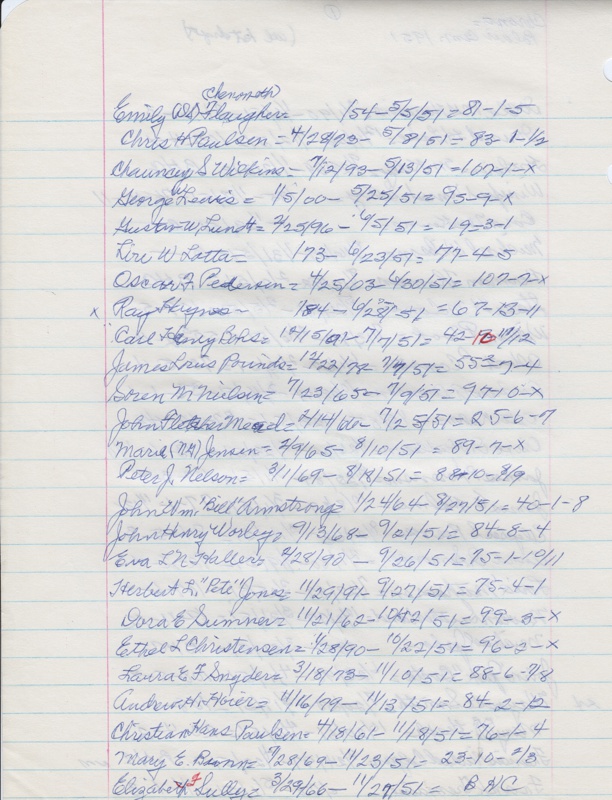 (Chenoweth)
Emily (OSD) Flaugher= /54-5/5/51=81-1-5
Chris H Paulsen=4/28/73-5/8/51=83-1-1/2
Chauncey S Wilkins=7/12/93-5/13/51=107-1-X
George W Lewis= 1/5/00-5/25/51=95-9-X
Gustav W Lundt=2/25/96-6/5/51=19-3-1
Lire W Lotta= 173-6/23/51=77-4-5
Oscar F. Pedersen=4/25/03-6/30/51=107-7-X
x Ray Haynes- 184-6/28/51=67-13-11
Carl Henry Bohs=10/15/91-7/7/51=42- 11/12
James Loris Pounds=12/22/78-7/7/51=55-7-4
Soren M. Neilsen=7/23/65-7/9/51=97-10-X
John Fletcher Mead=2/14/66-7/25/51=25-6-7
Marie (NH) Jensen=2/9/65-8/10/51=89-7-X
Peter J. Nelson=3/1/69-8/18/51=88-10-8/9
John Wm. "Bill" Armstrong=1/24/64-8/27/51=40-1-8
John Henry Worley= 9/13/68-9/01/51=84-8-4
Eva L N Haller= 2/28/90-9/26/51=75-1-10/11
Herbert L. "Pete" Jones=11/29/91-9/27/51=75-4-1
Dora E Sumner=11/21/62-10/12/51=99-3-X
Ethel L Christensen=1/28/90-10/22/51=96-2-X
Laura E F Snyder=3/18/73-11/10/51=88-6-7/8
Andrew H. Hoier=11/16/79-11/13/51=84-2-12
Christian Hans Paulsen=4/18/61-11/18/51=76-1-4
Mary E. Bronn=7/28/69-11/23/51=23-10-2/3
Elizabeth F Sulley=3/29/66-11/27/51= B HC